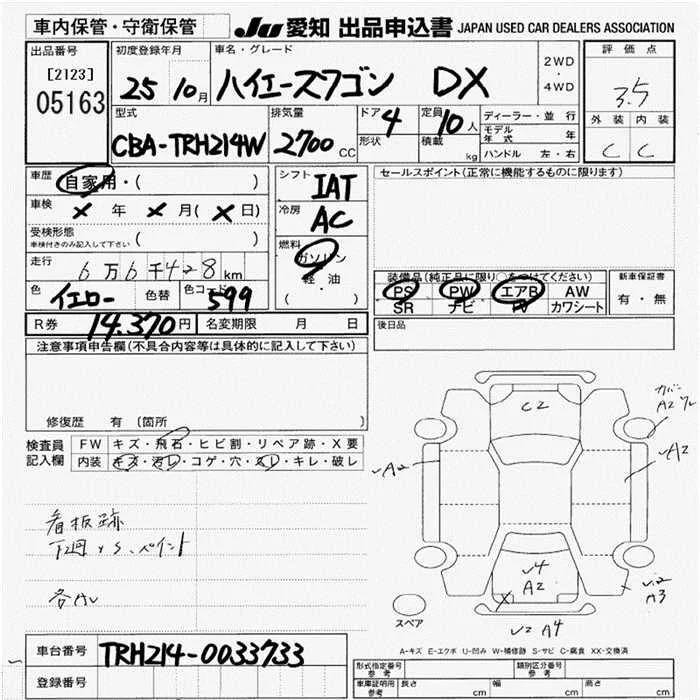 車内保管・守衛保管
JU 愛知 出品申込書 JAPAN USED CAR DEALERS ASSOCIATION
出品番号
[2123]
05163
初度登録年月
25 10月
車名・グレード
ハイエースワゴン DX
2WD
・
4WD
評価点
3.5
外装 内装
C C
型式
CBA-TRH214W
排気量
2700 CC
ドア 4
形状
定員 10人
積載 kg
ディーラー・並行
モデル年式 年
ハンドル 左・右
車歴 自家用・( )
車検 × 年 × 月( × 日)
受検形態
車検付きのみ記入して下さい ( )
走行 6万6千428km
色 イエロー 色替 色コード 599
シフト IAT
冷房 AC
燃料
ガソリン
軽・油
( )
R券 14.370円 名変期限 月 日
セールスポイント(正常に機能するものに限ります)
装備品(純正品に限り○をつけてください)
PS PW エアB AW
SR ナビ TV カワシート
新車保証書
有・無
後日品
注意事項申告欄(不具合内容等は具体的に記入して下さい)
修復歴 有 (箇所 )
検査員記入欄
FW キズ・飛石・ヒビ割・リペア跡・X要
内装 キズ・汚レ・コゲ・穴・スレ・キレ・破レ
看板跡
下廻
S.ペイント
C2
カバー
A2
A2
A2
√4
A2
A3
X
A4
スペア
A-キズ E-エクボ U-凹み W-補修跡 S-サビ C-腐食 XX-交換済
車台番号 TRH214-0033733
登録番号
形式指定番号
参考
類別区分番号
参考
車庫証明用
参考
長さ cm 幅 cm 高さ cm